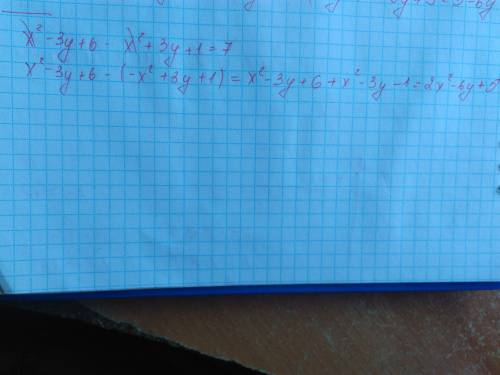 x² - 3y + 6 - x² + 3y + 1 = 7
x² - 3y + 6 - (-x² + 3y + 1) = x² - 3y + 6 + x² - 3y - 1 = 2x² - 6y + 5